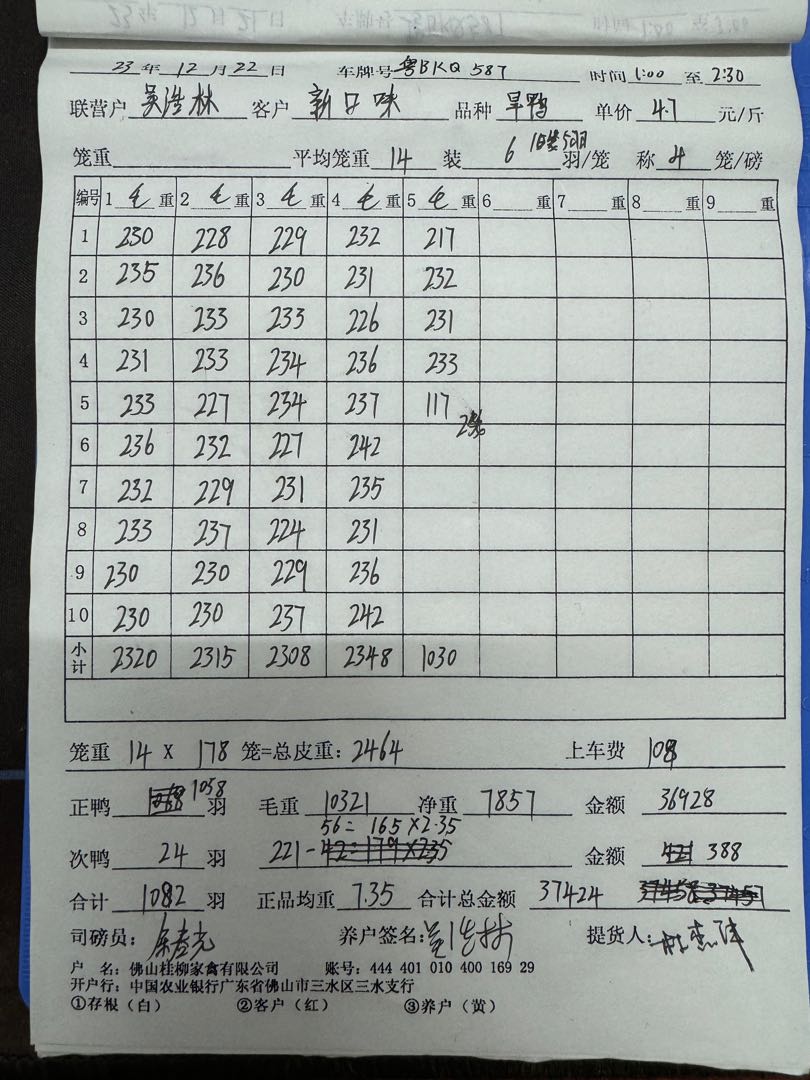 23 年 12 月 22 日 车牌号 粤BKQ 587 时间 1:00 至 2:30
联营户 吴浩林 客户 新口味 品种 旱鸭 单价 4.7 元/斤
笼重 平均笼重 14 装 6 羽/笼 称 4 笼/磅
编号 1 毛 重 2 毛 重 3 毛 重 4 毛 重 5 毛 重 6 重 7 重 8 重 9 重
1 230 228 229 232 217
2 235 236 230 231 232
3 230 233 233 226 231
4 231 233 234 236 233
5 233 227 234 237 117
6 236 232 227 242
7 232 229 231 235
8 233 237 224 231
9 230 230 229 236
10 230 230 237 242
小计 2320 2315 2308 2348 1030
笼重 14 X 178 笼=总皮重: 2464 上车费 108
正鸭 1058 羽 毛重 10321 净重 7857 金额 36928
56= 165×2.35
次鸭 24 羽 221- 金额 388
合计 1082 羽 正品均重 7.35 合计总金额 37424
司磅员: 养户签名: 提货人:
户 名: 佛山桂柳家禽有限公司 账号: 444 401 010 400 169 29
开户行: 中国农业银行广东省佛山市三水区三水支行
①存根（白） ②客户（红） ③养户（黄）